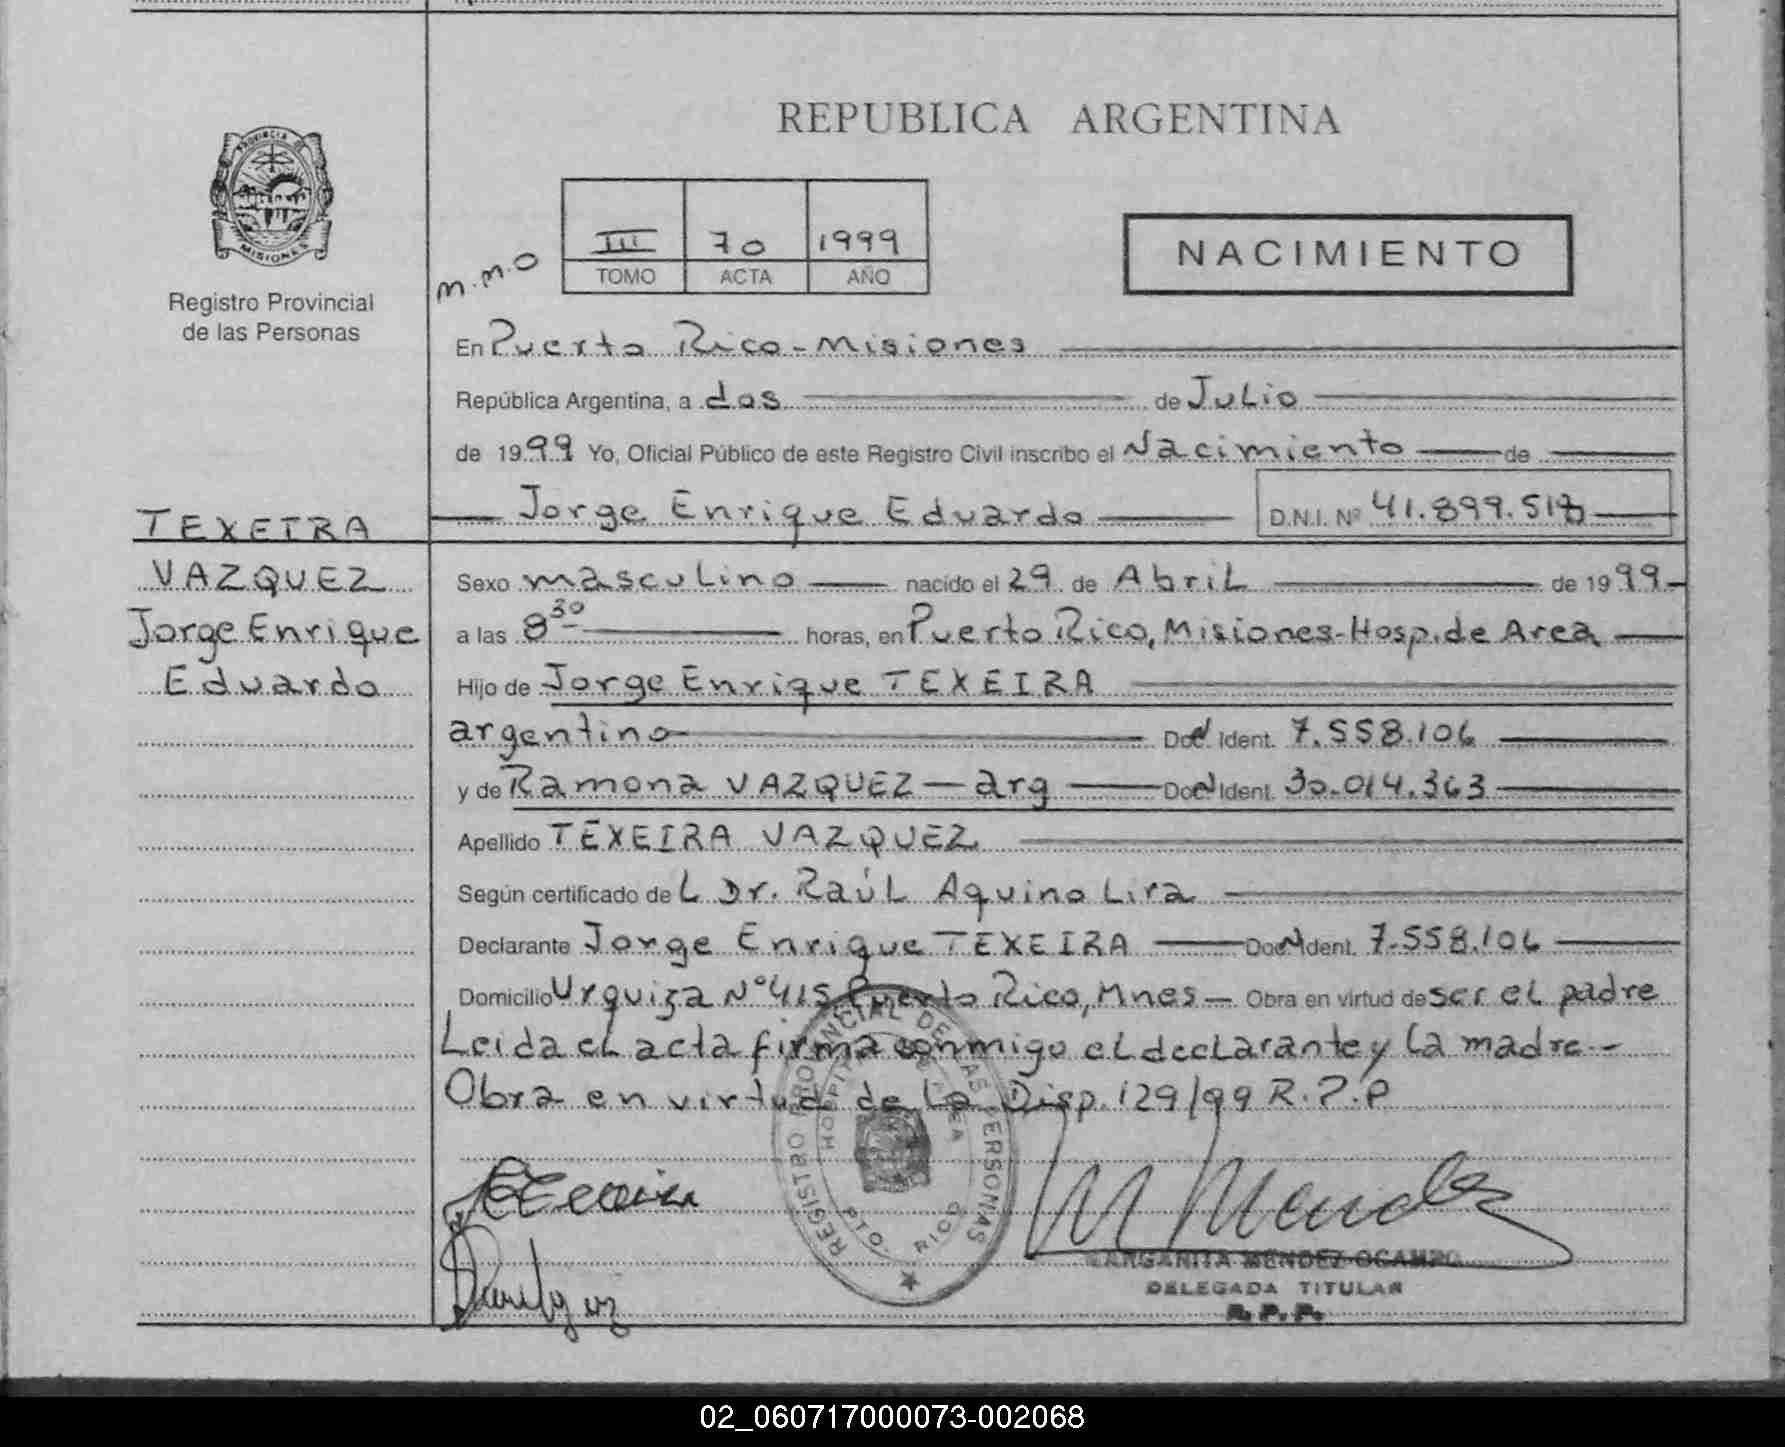 REPUBLICA ARGENTINA
PROVINCIA DE
MISIONES
Registro Provincial
de las Personas
m.m.o
III 70 1999
TOMO ACTA AÑO
NACIMIENTO
En Puerto Rico - Misiones
República Argentina, a dos de Julio
de 1999 Yo, Oficial Público de este Registro Civil inscribo el Nacimiento de
Jorge Enrique Eduardo D.N.I. Nº 41.899.518
TEXEIRA
VAZQUEZ
Jorge Enrique
Eduardo
Sexo masculino nacido el 29 de Abril de 1999
a las 8 30 horas, en Puerto Rico, Misiones-Hosp. de Area
Hijo de Jorge Enrique TEXEIRA
argentino Doc. Ident. 7.558.106
y de Ramona VAZQUEZ - arg Doc Ident. 30.014.363
Apellido TEXEIRA VAZQUEZ
Según certificado del Dr. Raúl Aquino Lira
Declarante Jorge Enrique TEXEIRA Doc Ident. 7.558.106
Domicilio Urquiza Nº 415 Puerto Rico, Mnes - Obra en virtud de ser el padre
Leida el acta firma conmigo el declarante y la madre.-
Obra en virtud de la Disp. 129/99 R.P.P
REGISTRO PROVINCIAL DE LAS PERSONAS
HOSPITAL DE AREA
PTO. RICO
M Mendez
MARGARITA MENDEZ OCAMPO
DELEGADA TITULAR
R.P.P.
02_060717000073-002068